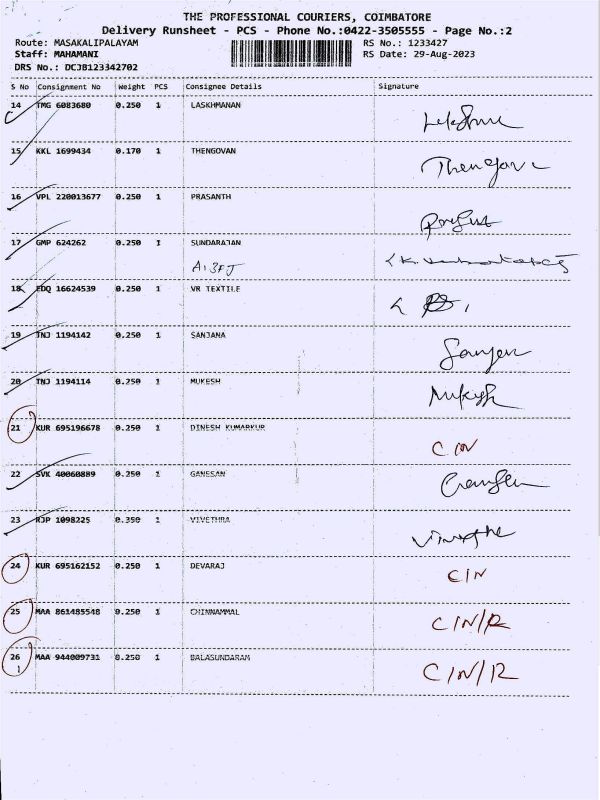 THE PROFESSIONAL COURIERS, COIMBATORE
Delivery Runsheet - PCS - Phone No.:0422-3505555 - Page No.:2
Route: MASAKALIPALAYAM RS No.: 1233427
Staff: MAHAMANI RS Date: 29-Aug-2023
DRS No.: DCJB123342702
S No Consignment No Weight PCS Consignee Details Signature
14 TMG 6083680 0.250 1 LASKHMANAN
15 KKL 1699434 0.170 1 THENGOVAN
16 VPL 220013677 0.250 1 PRASANTH
17 GMP 624262 0.250 1 SUNDARAJAN
18 EDQ 16624539 0.250 1 VR TEXTILE
19 TNJ 1194142 0.250 1 SANJANA
20 TNJ 1194114 0.250 1 MUKESH Mukesh
21 KUR 695196678 0.250 1 DINESH KUMARKUR CIN
22 SVK 40060889 0.250 1 GANESAN
23 RJP 1098225 0.350 1 VIVETHRA
24 KUR 695162152 0.250 1 DEVARAJ CIN
25 MAA 861485548 0.250 1 CHINNAMMAL CIN/R
26 MAA 944009731 0.250 1 BALASUNDARAM CIN/R